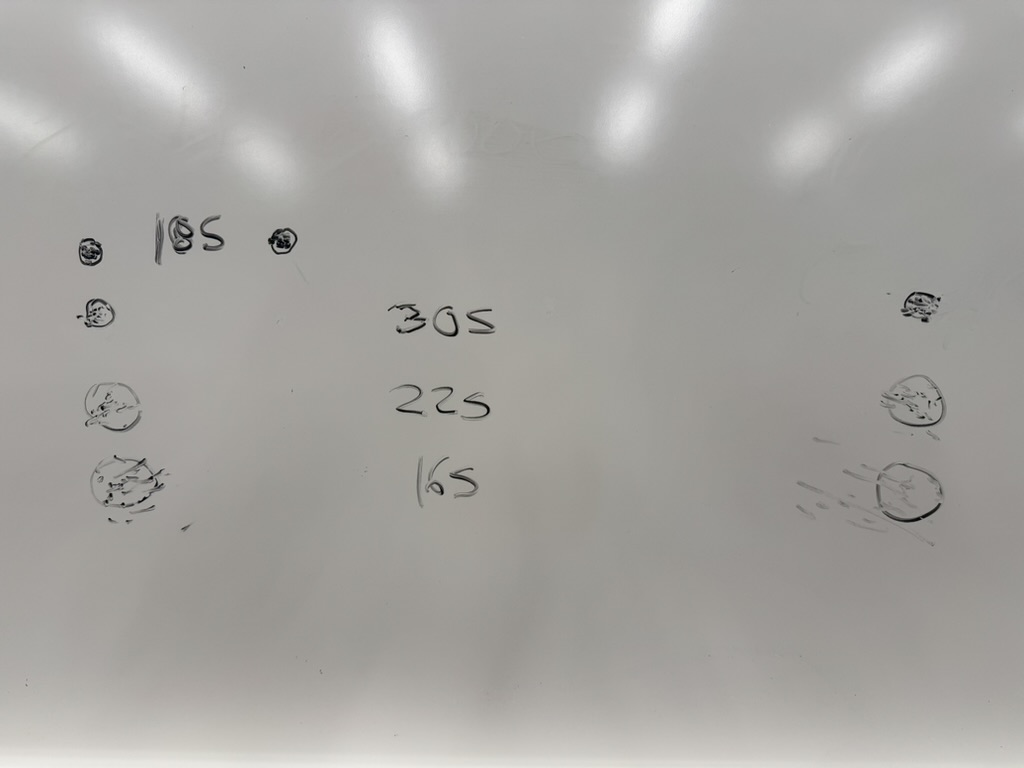 18s
30s
22s
16s